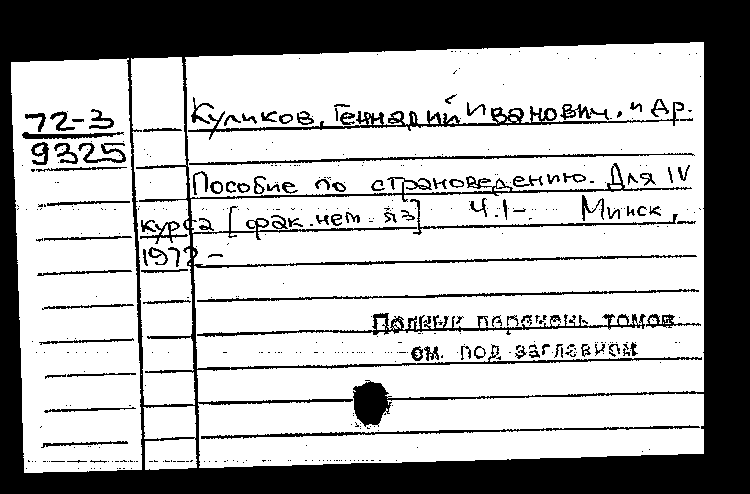 72-3
9325
Куликов, Геннадий Иванович, и др.
Пособие по страноведению. Для IV
курса [фак. нем. яз] Ч.1-. Минск,
1972 -
Полный перечень томов
см. под заглавием